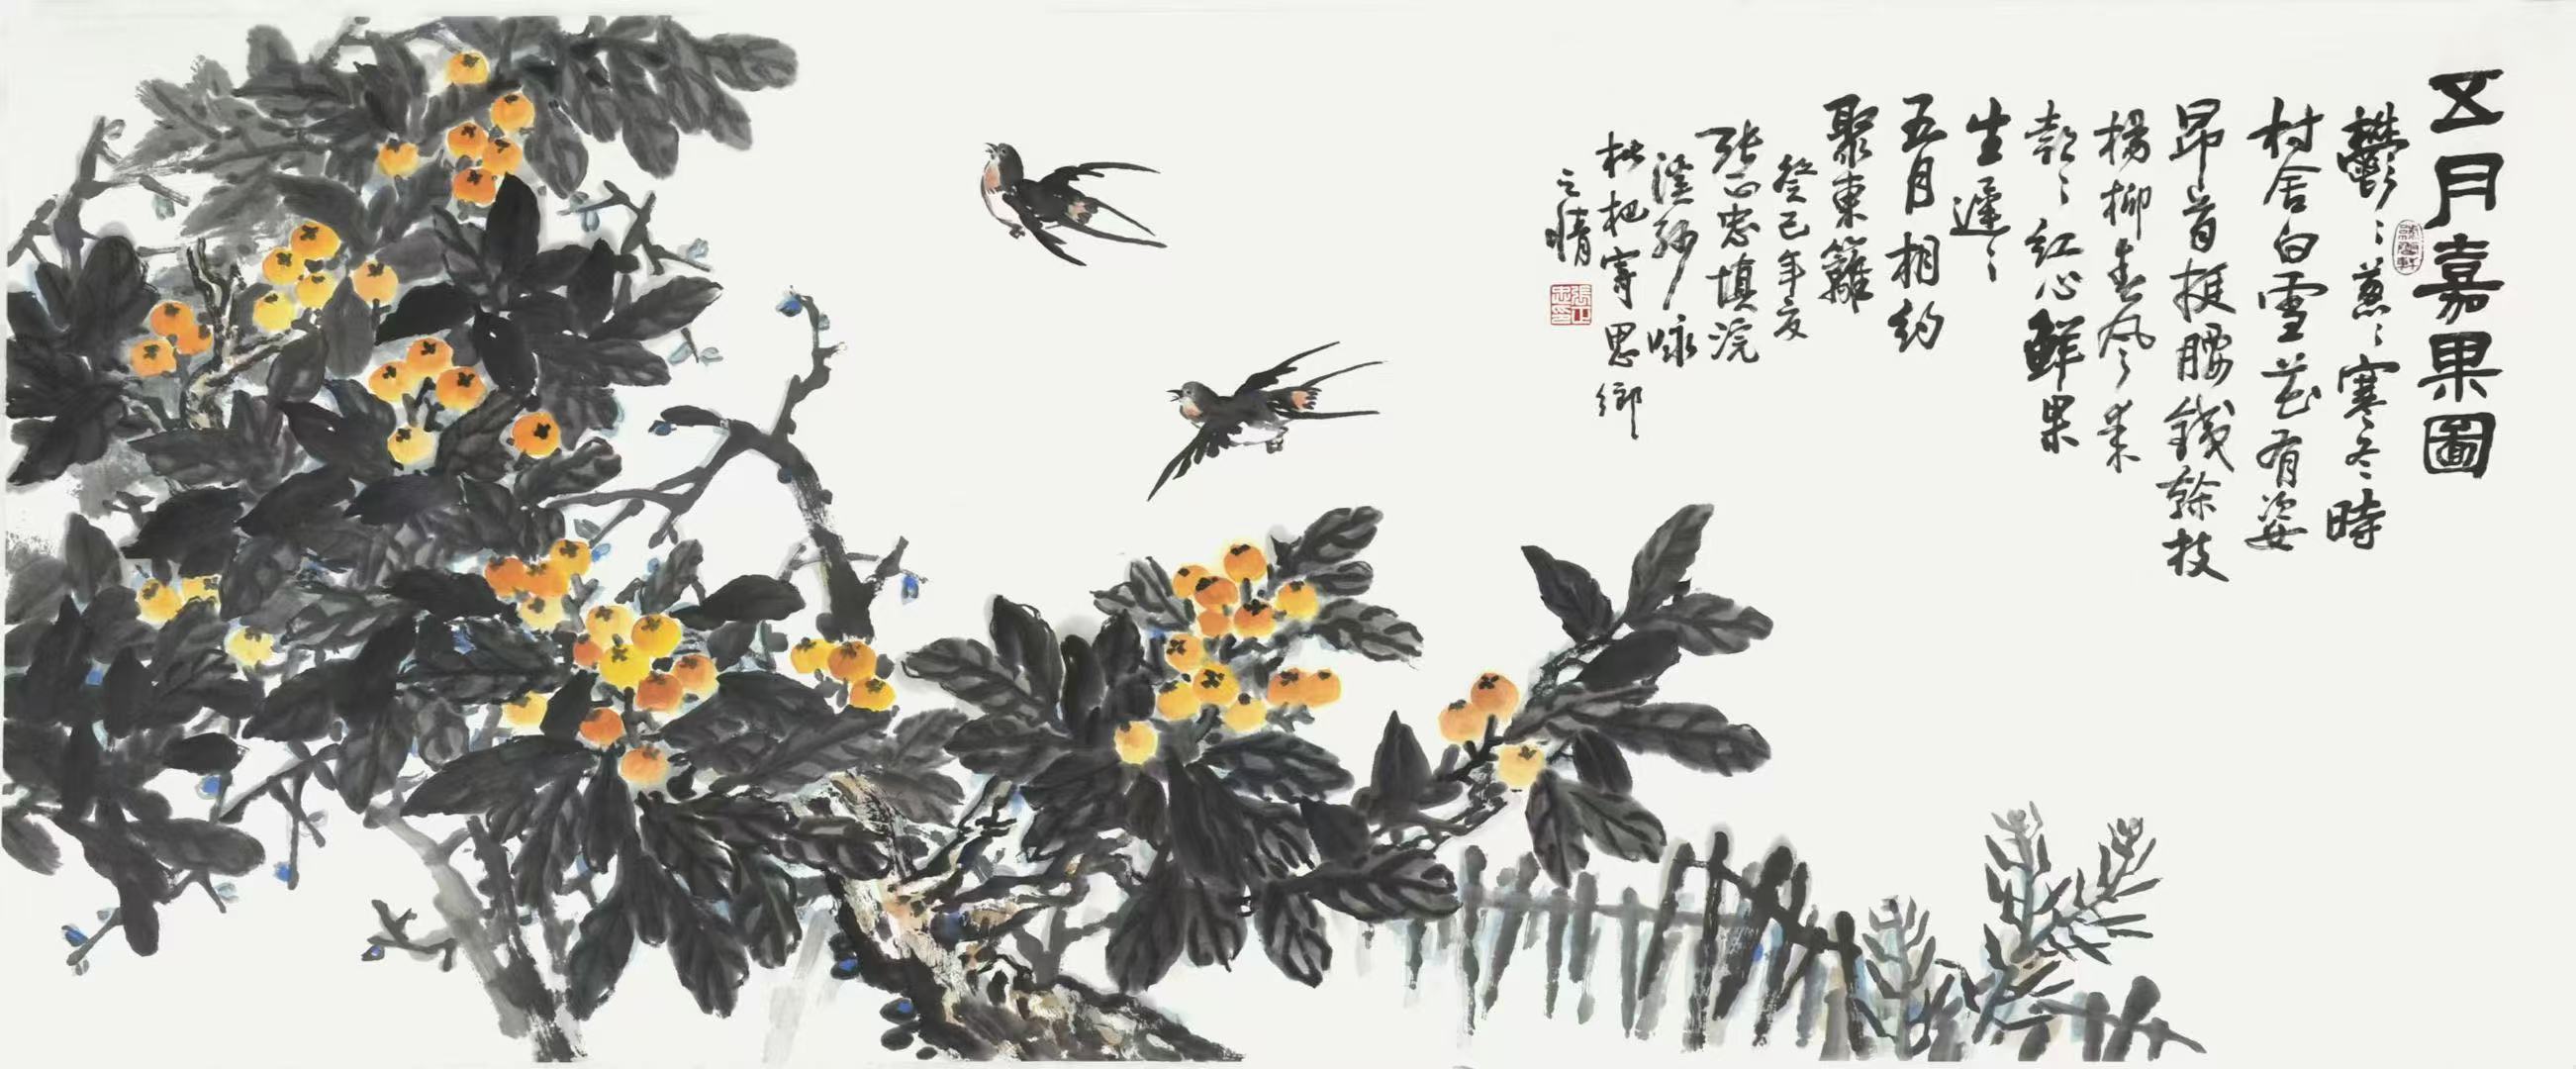 五月嘉果圖
鬱〻蔥〻寒冬時
村舍白雪花有姿
昂首挺腰鐵幹枝
楊柳春風來
彭〻紅心鮮果
生遲〻
五月相約
聚東籬
癸巳年夏
張正忠填浣
溪紗咏
枇杷寄思鄉
之情